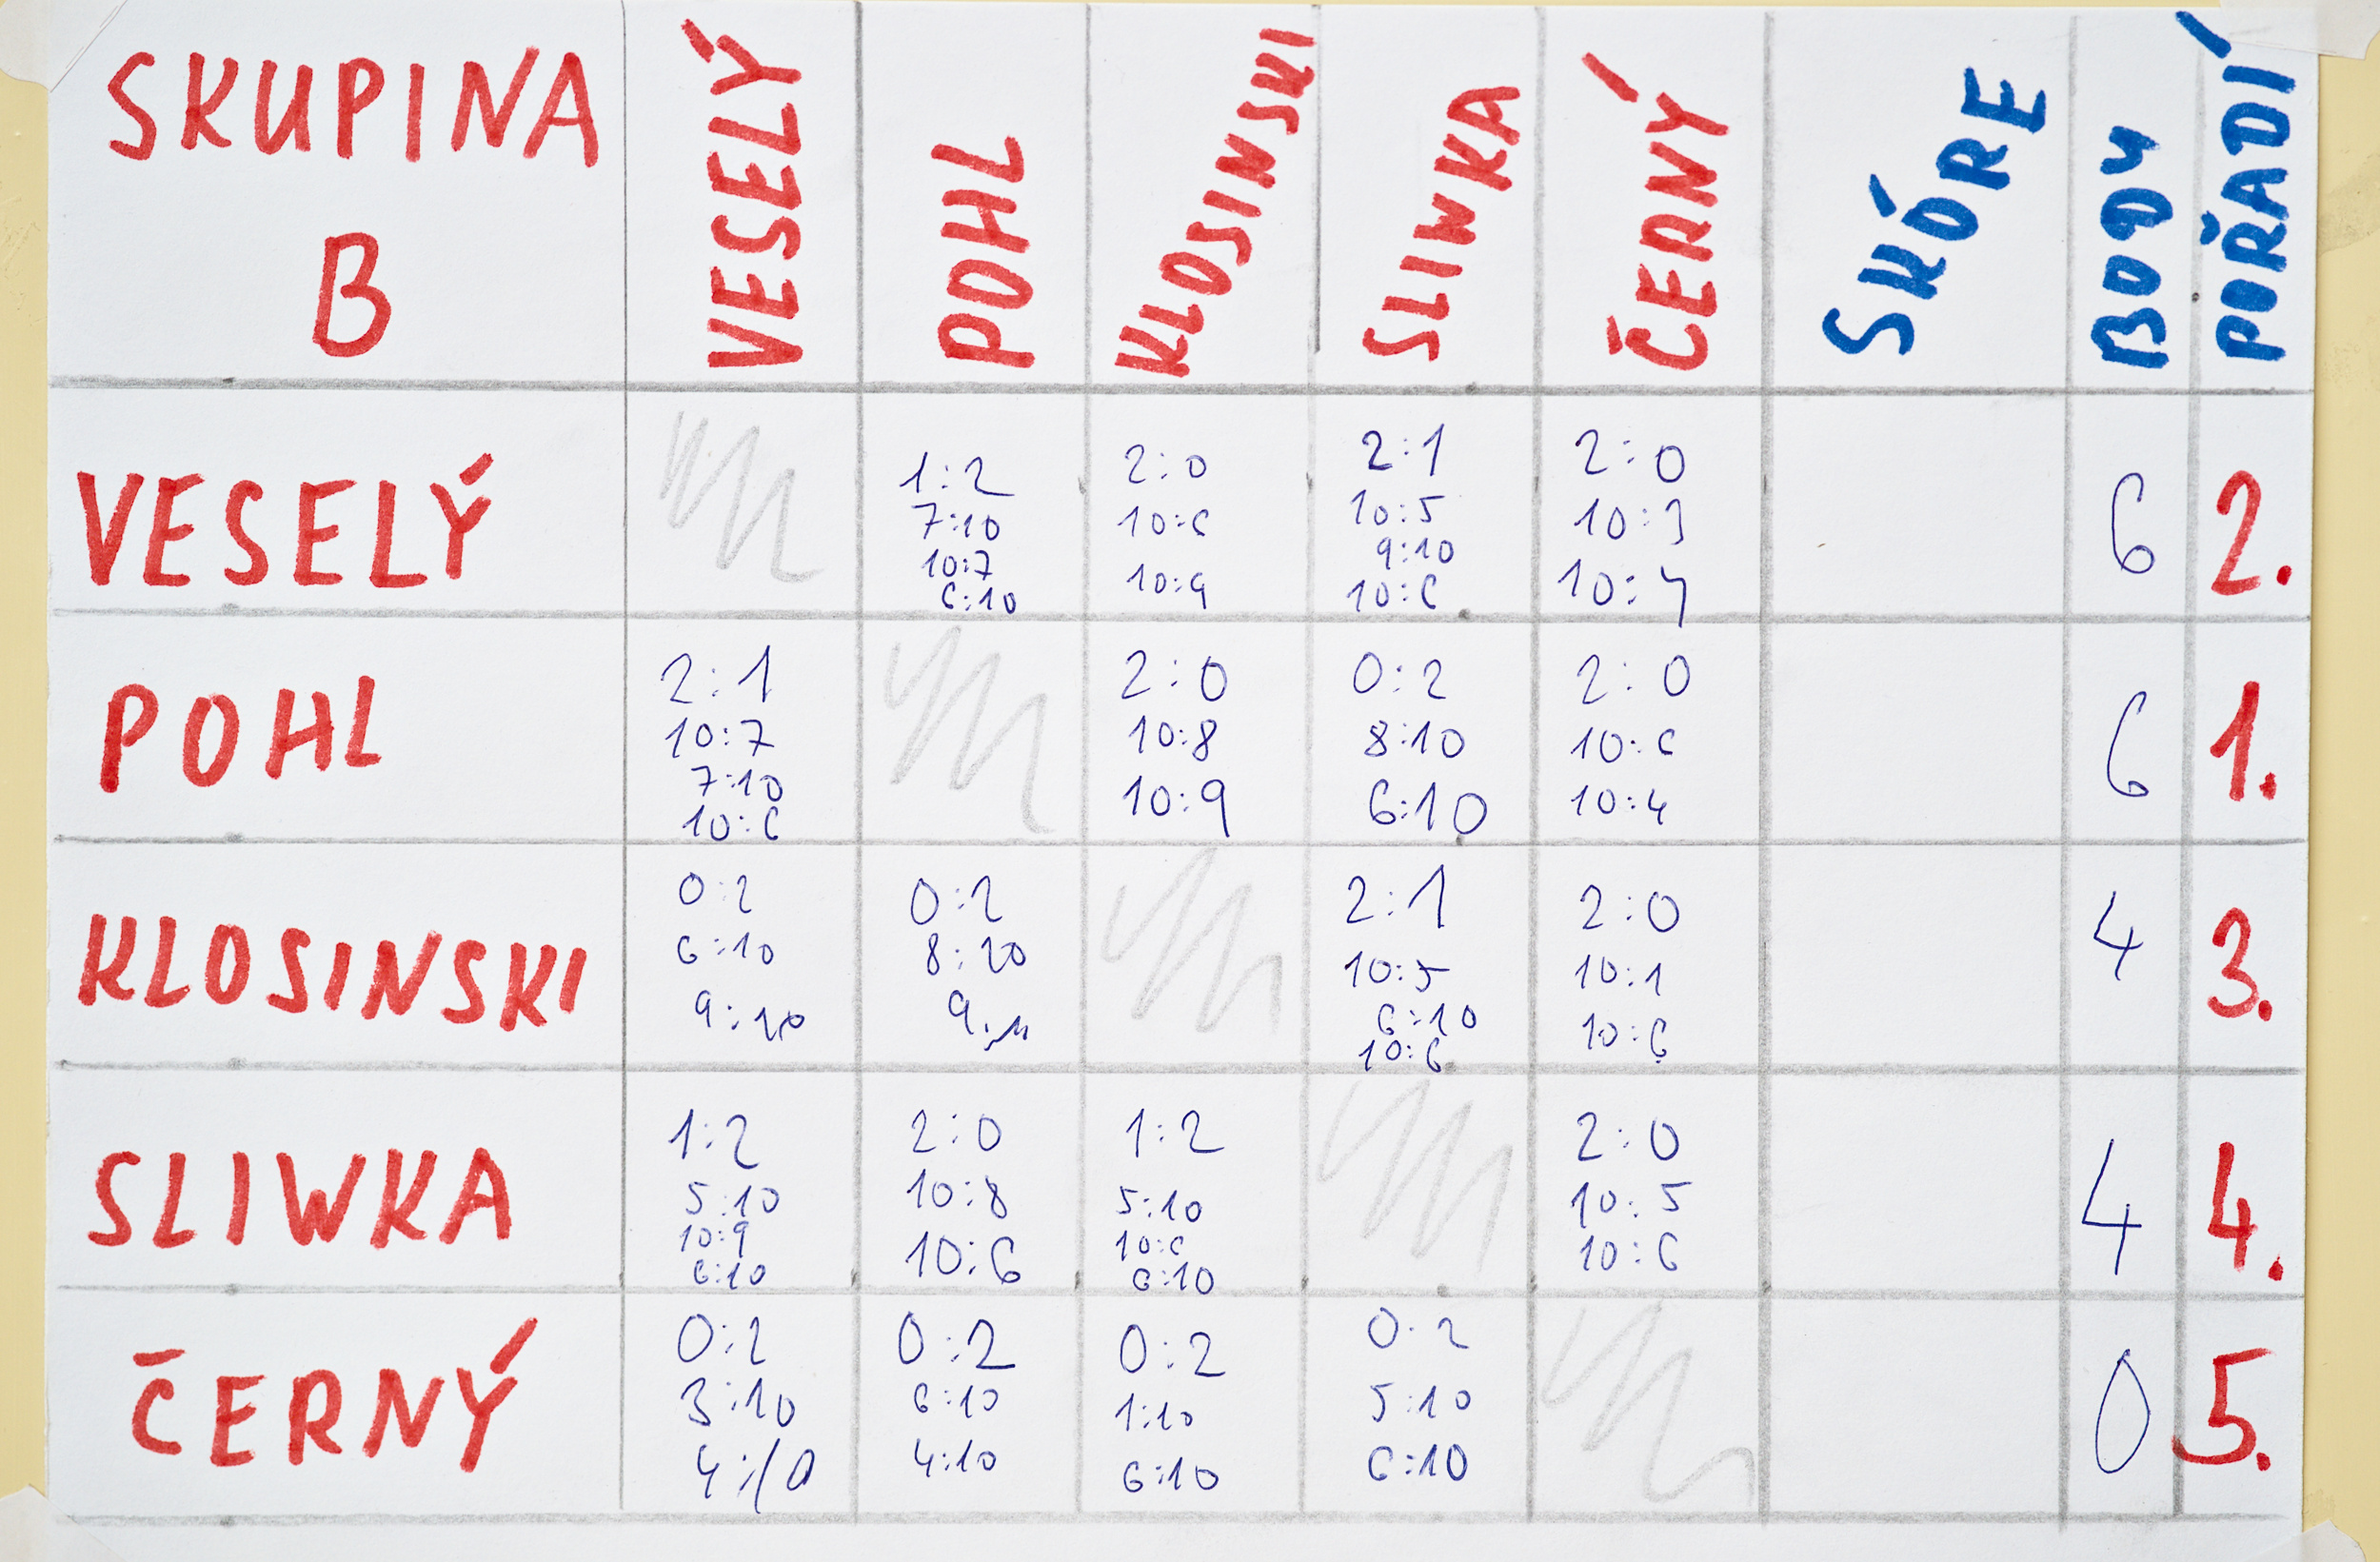 SKUPINA
B
VESELÝ
POHL
KLOSINSKI
SLIWKA
ČERNÝ
SKÓRE
BODY
POŘADÍ
VESELÝ
1:2
7:10
10:7
6:10
2:0
10:6
10:9
2:1
10:5
9:10
10:6
2:0
10:3
10:4
6
2.
POHL
2:1
10:7
7:10
10:6
2:0
10:8
10:9
0:2
8:10
6:10
2:0
10:6
10:4
6
1.
KLOSINSKI
0:2
6:10
9:10
0:2
8:10
9:10
2:1
10:5
6:10
10:6
2:0
10:1
10:6
4
3.
SLIWKA
1:2
5:10
10:9
6:10
2:0
10:8
10:6
1:2
5:10
10:6
6:10
2:0
10:5
10:6
4
4.
ČERNÝ
0:2
3:10
4:10
0:2
6:10
4:10
0:2
1:10
6:10
0:2
5:10
6:10
0
5.